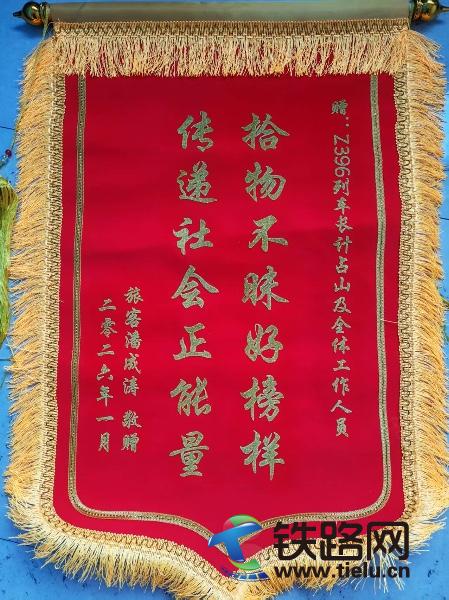 赠：Z396列车长计占山及全体工作人员
拾物不昧好榜样
传递社会正能量
旅客潘成涛 敬赠
二零二六年一月
铁路网
www.tielu.cn